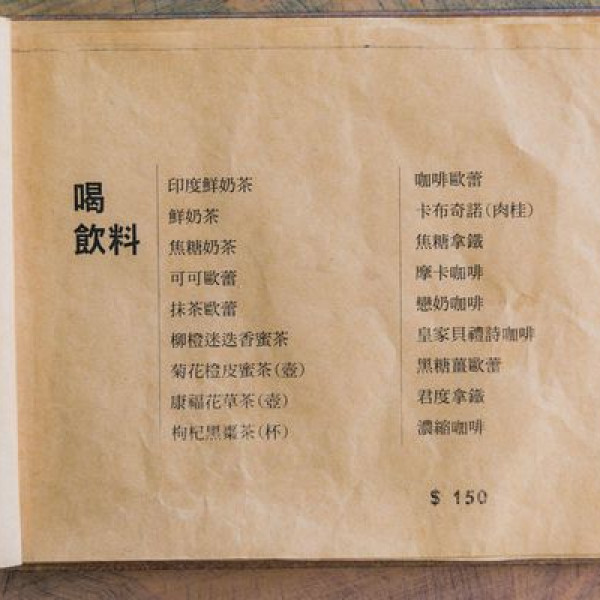 喝
飲料
印度鮮奶茶
鮮奶茶
焦糖奶茶
可可歐蕾
抹茶歐蕾
柳橙迷迭香蜜茶
菊花橙皮蜜茶(壺)
康福花草茶(壺)
枸杞黑棗茶(杯)
咖啡歐蕾
卡布奇諾(肉桂)
焦糖拿鐵
摩卡咖啡
戀奶咖啡
皇家貝禮詩咖啡
黑糖薑歐蕾
君度拿鐵
濃縮咖啡
$ 150